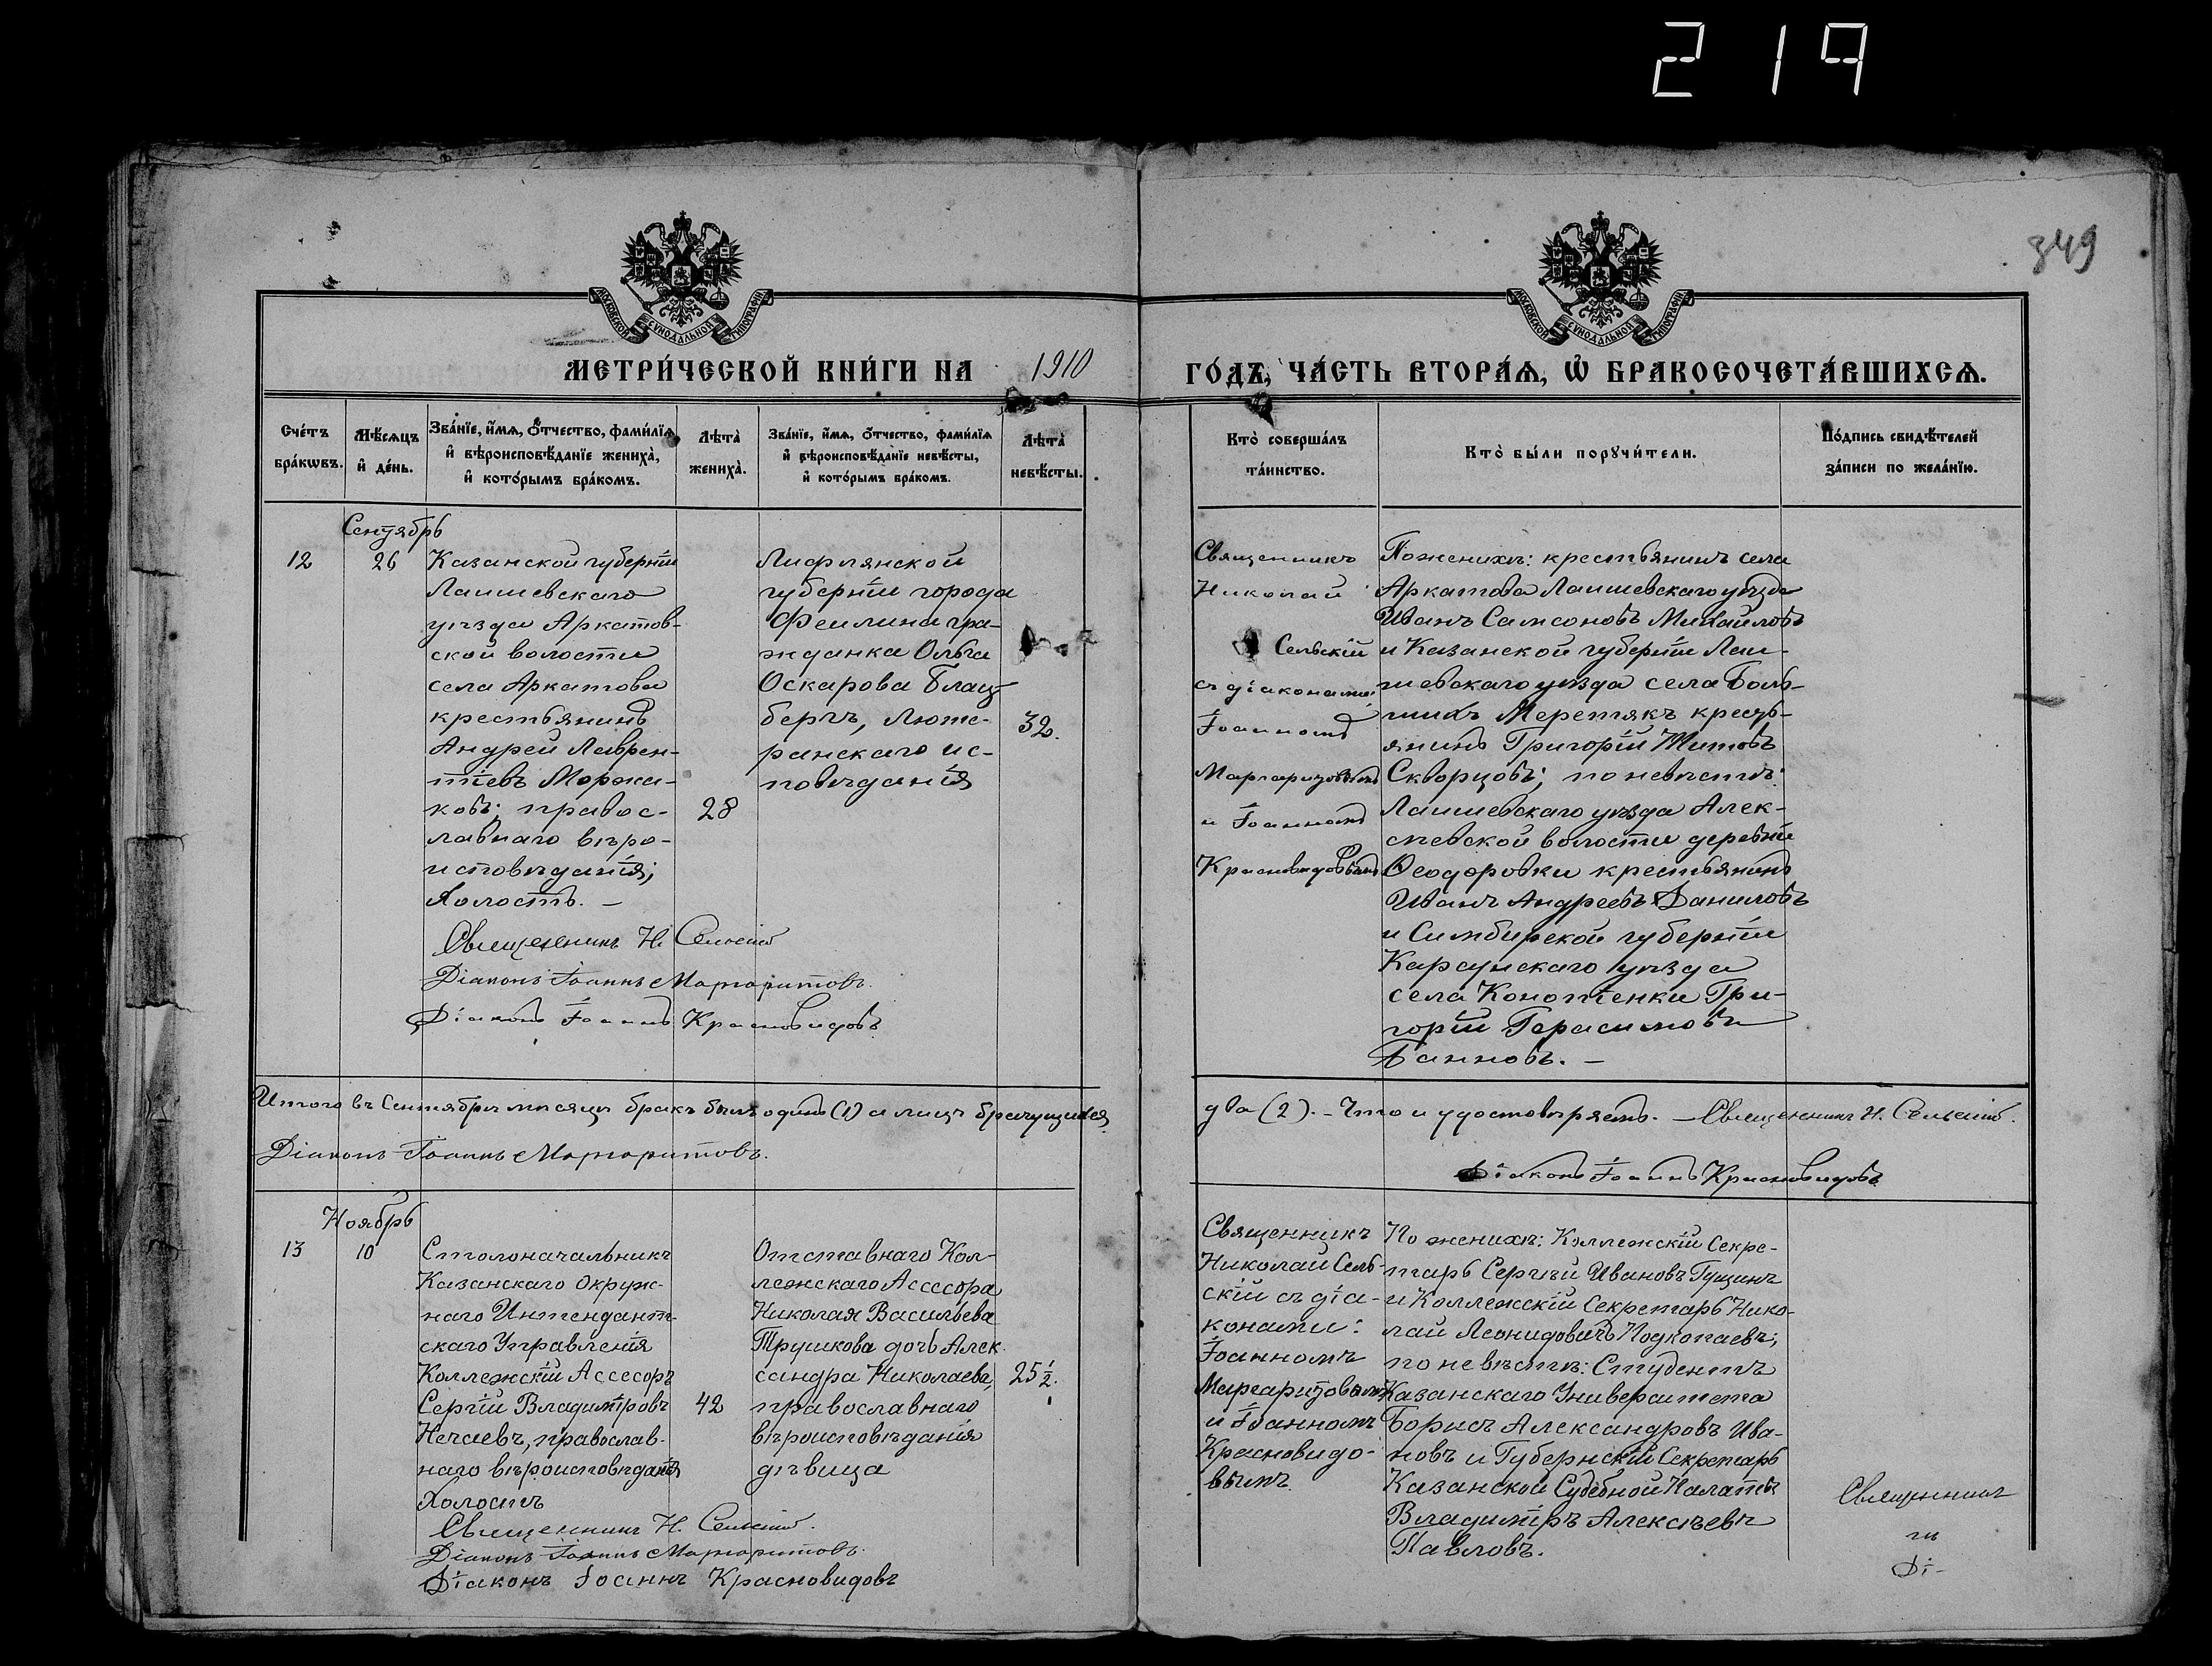 219
349
МОСКОВСКОЙ СѴНОДАЛЬНОЙ ТИПОГРАФІИ
МОСКОВСКОЙ СѴНОДАЛЬНОЙ ТИПОГРАФІИ
МЕТРИ́ЧЕСКОЙ КНИ́ГИ НА 1910 ГО́ДЪ, ЧА́СТЬ ВТОРА́Ѧ, Ѽ БРАКОСОЧЕТА́ВШИХСѦ.
Сче́тъ
бра́кѡвъ.
Мѣ́сѧцъ
и҆ де́нь.
Зва́нїе, и҆́мѧ, ѻ҆́тчество, фами́лїѧ
и҆ вѣроисповѣ́данїе жениха̀,
и҆ кото́рымъ бра́комъ.
Лѣта̀
жениха̀.
Зва́нїе, и҆́мѧ, ѻ҆́тчество, фами́лїѧ
и҆ вѣроисповѣ́данїе невѣ́сты,
и҆ кото́рымъ бра́комъ.
Лѣта̀
невѣ́сты.
Кто̀ соверша́лъ
та́инство.
Кто̀ бы́ли порꙋчи́тели.
По́дпись свидѣ́телей
за́писи по жела́нїю.
Сентябрь
12
26
Казанской губерніи
Лаишевскаго
уѣзда Аркатов-
ской волости
села Аркатова
крестьянинъ
Андрей Лаврен-
тіевъ Моржа-
ковъ; правос-
лавнаго вѣро-
исповѣданія;
Холостъ. –
28
Лифлянской
губерніи города
Феллина гра-
жданка Ольга
Оскарова Блац-
бергъ, Люте-
ранскаго ис-
повѣданія
32.
Священникъ
Николай
Сельскій
съ діаконами:
Іоанномъ
Маргаритовымъ
и Іоанномъ
Красновидовымъ
По женихѣ: крестьянинъ села
Аркатова Лаишевскаго уѣзда
Иванъ Самсоновъ Михайловъ
и Казанской губерніи Лаи-
шевскаго уѣзда села Боль-
шихъ Меретякъ кресть-
янинъ Григорій Титовъ
Скворцовъ; по невѣстѣ:
Лаишевскаго уѣзда Алек-
сѣевской волости деревни
Ѳеодоровки крестьянинъ
Иванъ Андреевъ Даниловъ
и Симбирской губерніи
Карсунскаго уѣзда
села Коноплянки Гри-
горій Герасимовъ
Баннов. –
Священникъ Н. Сельскій
Діаконъ Іоаннъ Маргаритовъ.
Діаконъ Іоаннъ Красновидовъ
Итого въ Сентябрѣ мѣсяцѣ бракъ былъ одинъ (1) а лицъ брачущихся
два (2). – Что и удостовѣряемъ. – Священникъ Н. Сельскій.
Діаконъ Іоаннъ Маргаритовъ.
Діаконъ Іоаннъ Красновидовъ
Ноябрь
13
10
Столоначальникъ
Казанскаго Окруж-
наго Интендант-
скаго Управленія
Коллежскій Ассесоръ
Сергій Владиміровъ
Нечаевъ, православ-
наго вѣроисповѣданія
Холостъ
42
Отставнаго Кол-
лежскаго Ассесора
Николая Васильева
Трушкова дочь Алек-
сандра Николаева,
православнаго
вѣроисповѣданія
дѣвица
25 ½.
Священникъ
Николай Сель-
скій съ діа-
конами:
Іоанномъ
Маргаритовымъ
и Іоанномъ
Красновидо-
вымъ.
По женихѣ: Коллежскій Секре-
тарь Сергѣй Ивановъ Гущинъ
и Коллежскій Секретарь Нико-
лай Леонидовичъ Подкопаевъ;
по невѣстѣ: Студентъ
Казанскаго Университета
Борисъ Александровъ Ива-
новъ и Губернскій Секретарь
Казанской Судебной Палаты
Владиміръ Алексѣевъ
Павловъ.
Священникъ Н. Сельскій.
Діаконъ Іоаннъ Маргаритовъ.
Діаконъ Іоаннъ Красновидовъ
Священник
Ді-